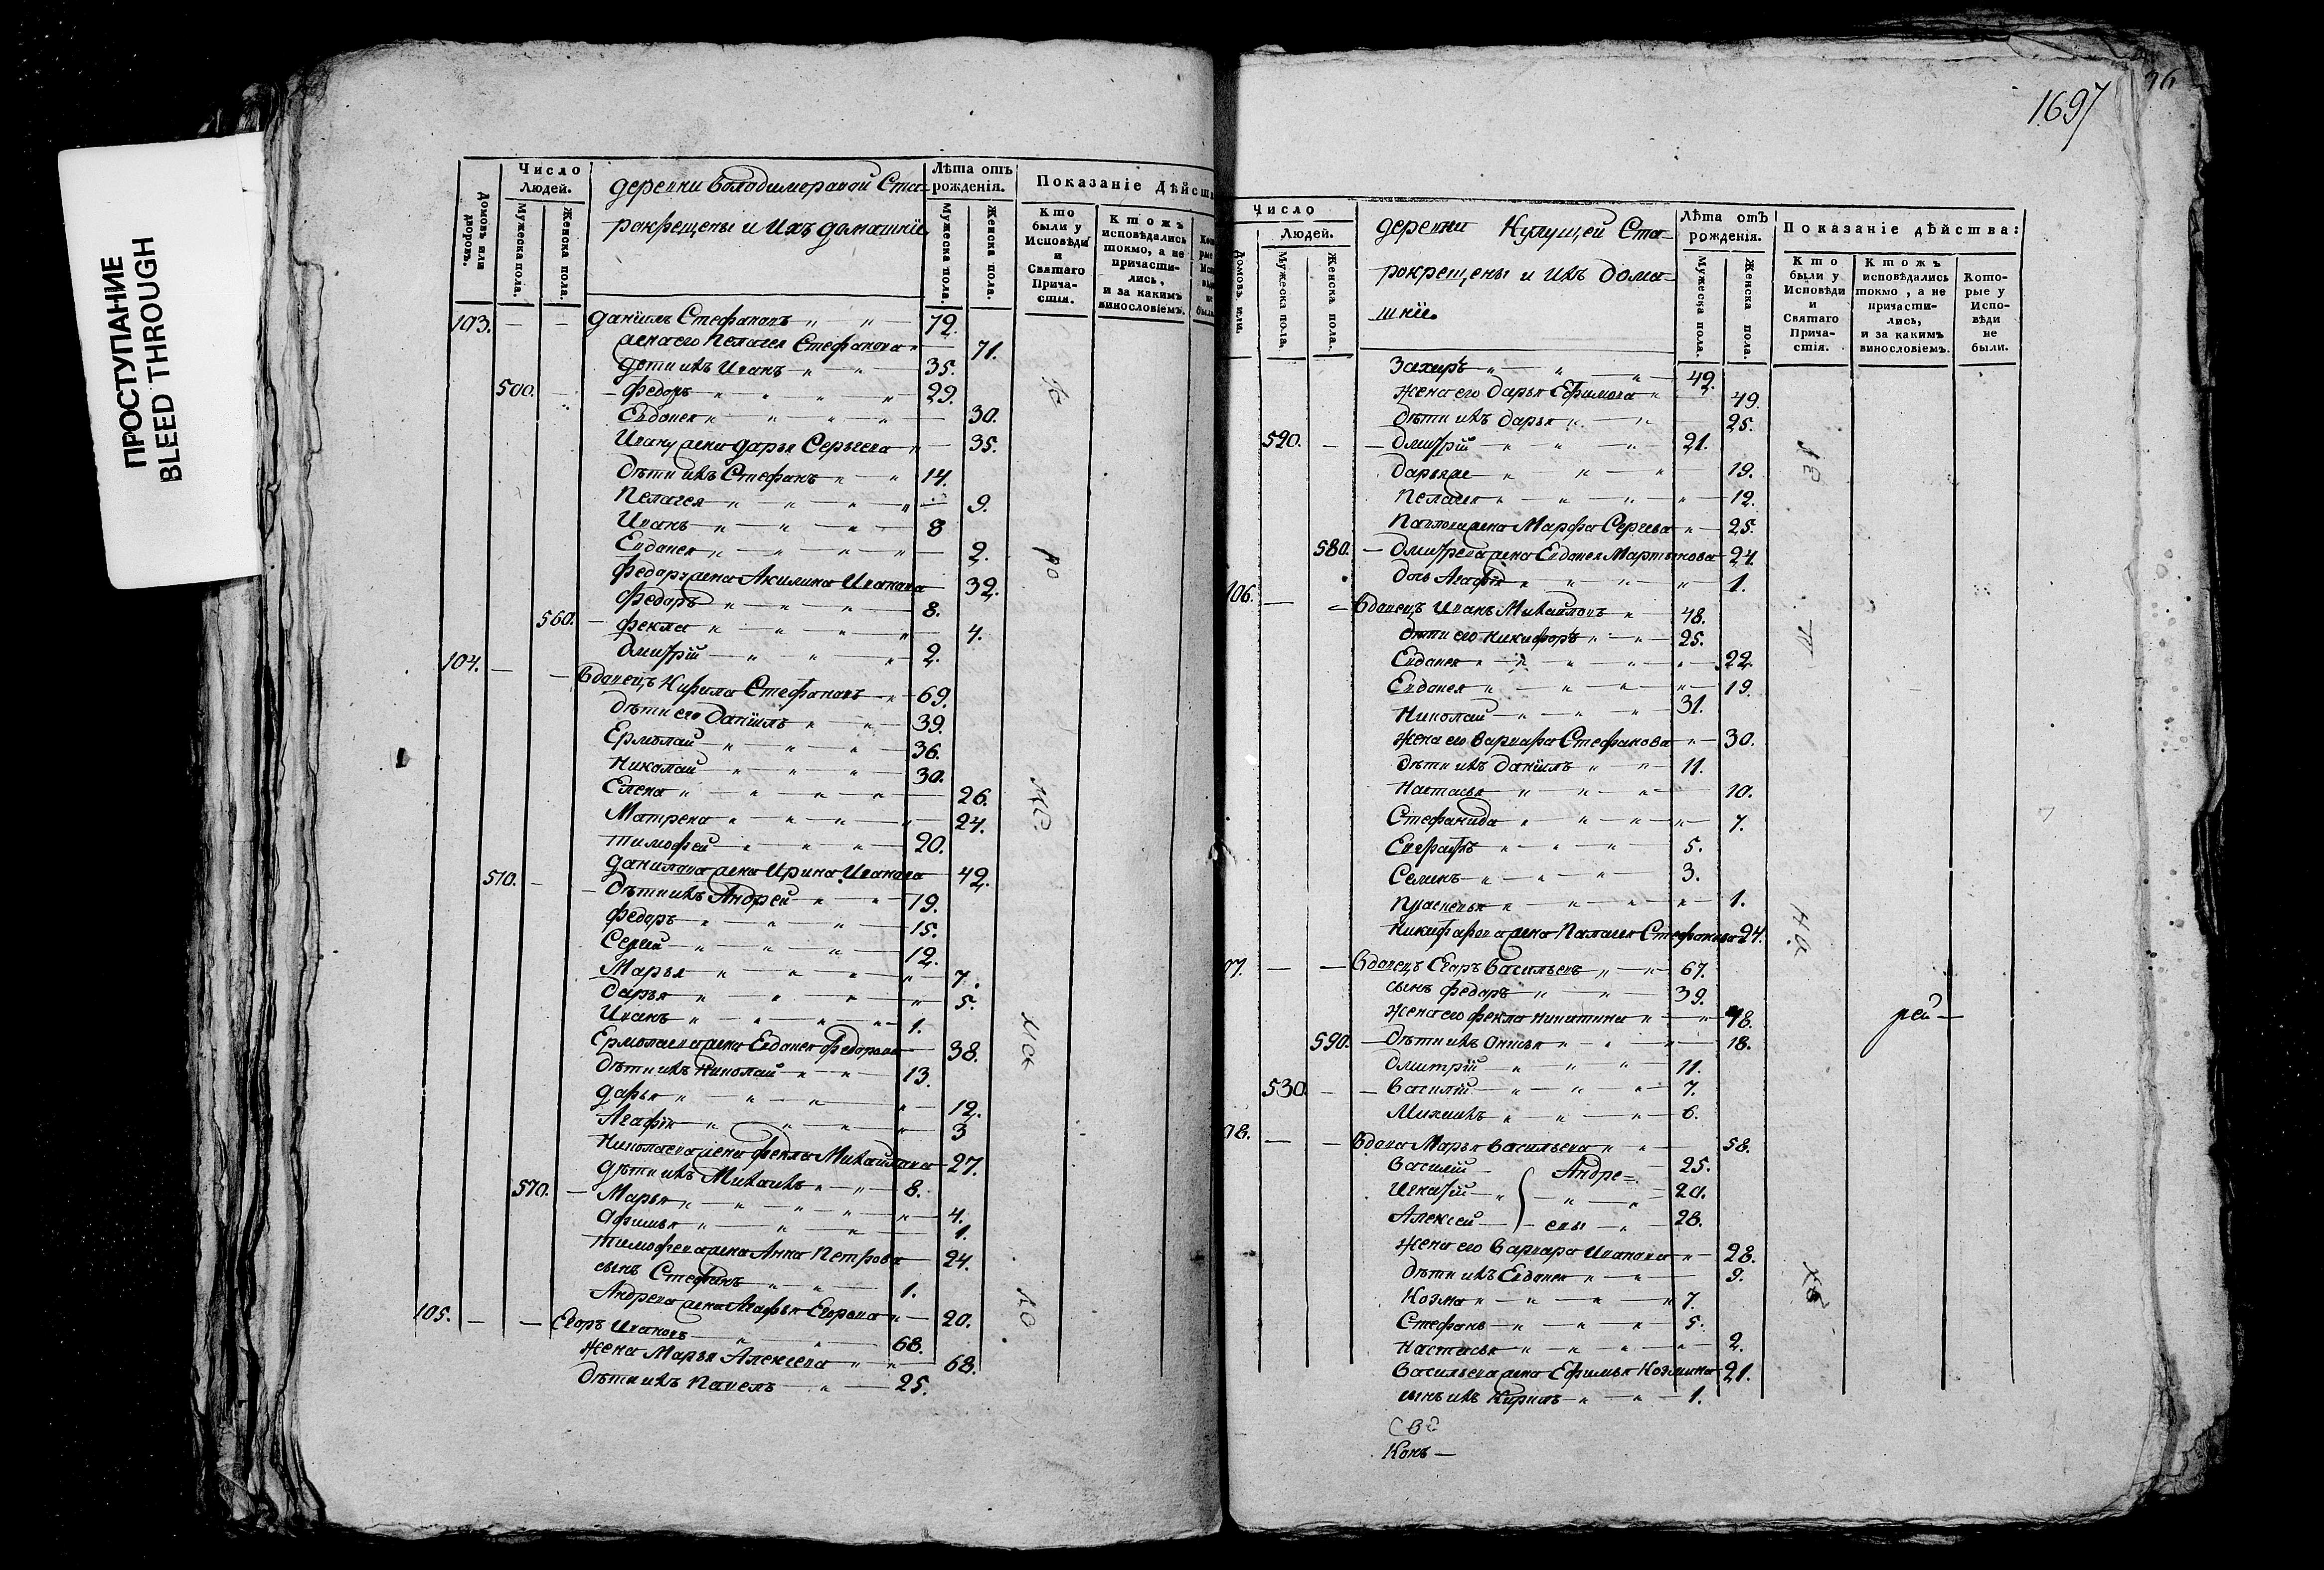 ПРОСТУПАНИЕ
BLEED THROUGH
Число Людей.
Домовъ или дворовъ.
Мужеска пола.
Женска пола.
деревни Володимеровой Ста-
рокрещены и ихъ домашніе
Лѣта отъ рожденія.
Мужеска пола.
Женска пола.
Показаніе Дѣйств
Кто были у Исповѣди и Святаго Прича-стія.
Ктожъ исповѣдались токмо, а не причасти-лись, и за какимъ винословіемъ.
103. — — Даніилъ Стефановъ 72.
жена его Пелагея Стефанова 71.
дети ихъ Иванъ 35.
500. — Федоръ 29.
Евдокея 30.
Ивану жена Дарья Сергеева 35.
Дѣти ихъ Стефанъ 14.
Пелагея 9.
Иванъ 8
Евдокея 2.
Федору жена Акилина Иванова 32.
Федоръ 8.
560. — Фекла 4.
Дмитрій 2.
104. — — Вдовецъ Кирила Стефановъ 69.
Дѣти его Даніилъ 39.
Ермолай 36.
Николай 30.
Елена 26.
Матрена 24.
Тимофей 20.
Данилова жена Ирина Иванова 42.
510. — Дѣти ихъ Андрей 19.
Федоръ 15.
Сергей 12.
Марья 7.
Дарья 5.
Иванъ 1.
Ермолаева жена Евдокея Федорова 38.
Дѣти ихъ Николай 13.
Дарья 12.
Агафія 3
Николаева жена Фекла Михайлова 27.
Дѣти ихъ Михаилъ 8.
570. — Марья 4.
Афимья 1.
Тимофеева жена Анна Петрова 24.
сынъ Стефанъ 1.
Андреева жена Агафья Егорова 20.
105. — — Егоръ Ивановъ 68.
жена Марья Алексеева 68.
Дѣти ихъ Павелъ 25.
1697
Число
Людей.
Домовъ или.
Мужеска пола.
Женска пола.
деревни Кулущей Ста-
рокрещены и ихъ дома-
шніе.
Лѣта отъ рожденія.
Мужеска пола.
Женска пола.
Показаніе дѣйства:
Кто были у Исповѣди и Святаго Прича-стія.
Ктожъ исповѣдались токмо, а не причасти-лись, и за какимъ винословіемъ.
Кото-рые у Испо-вѣди не были.
Захаръ 42.
жена его Дарья Ефимова 49.
Дѣти ихъ Дарья 25.
520. — Дмитрій 21.
Дарья 19.
Пелагея 12.
Павлова жена Марфа Сергева 25.
580. — Дмитрева жена Евдокея Мартынова 24.
Дочь Агафія 1.
106. — — Вдовецъ Иванъ Михайловъ 48.
дѣти его Никифоръ 25.
Евдокея 22.
Евдокея 19.
Николай 31.
жена его Варвара Стефанова 30.
Дѣти ихъ Даніилъ 11.
Настасья 10.
Стефанида 7.
Евграфъ 5.
Семенъ 3.
1.
Никифорова жена Палагея Стефанова 24.
07. — — Вдовецъ Егоръ Васильевъ 67.
сынъ Федоръ 39.
жена его Фекла Никитина 48.
590. — Дѣти ихъ Анисья 18.
Дмитрій 11.
530. — Василій 7.
Михаилъ 6.
08. — — Вдова Марья Васильева 58.
Василій Андре= 25.
Игнатій 20.
Алексей евы 28.
жена его Варвара Иванова 28.
Дѣти ихъ Евдокея 9.
Козма 7.
Стефанъ 5.
Настасья 2.
Васильева жена Ефимья Козмина 21.
сынъ ихъ Кирилъ 1.
рей —